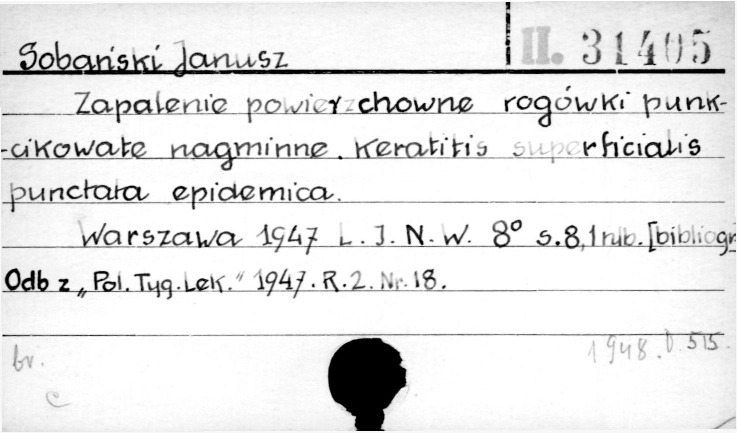 II. 31405
Sobański Janusz
Zapalenie powierzchowne rogówki punk-
-cikowate nagminne. Keratitis superficialis
punctata epidemica.
Warszawa 1947 L. J. N. W. 8° s. 8, 1 nlb. [bibliogr
Odb z „Pol. Tyg. Lek." 1947. R. 2. Nr. 18.
br. 1948. D. 515.
c